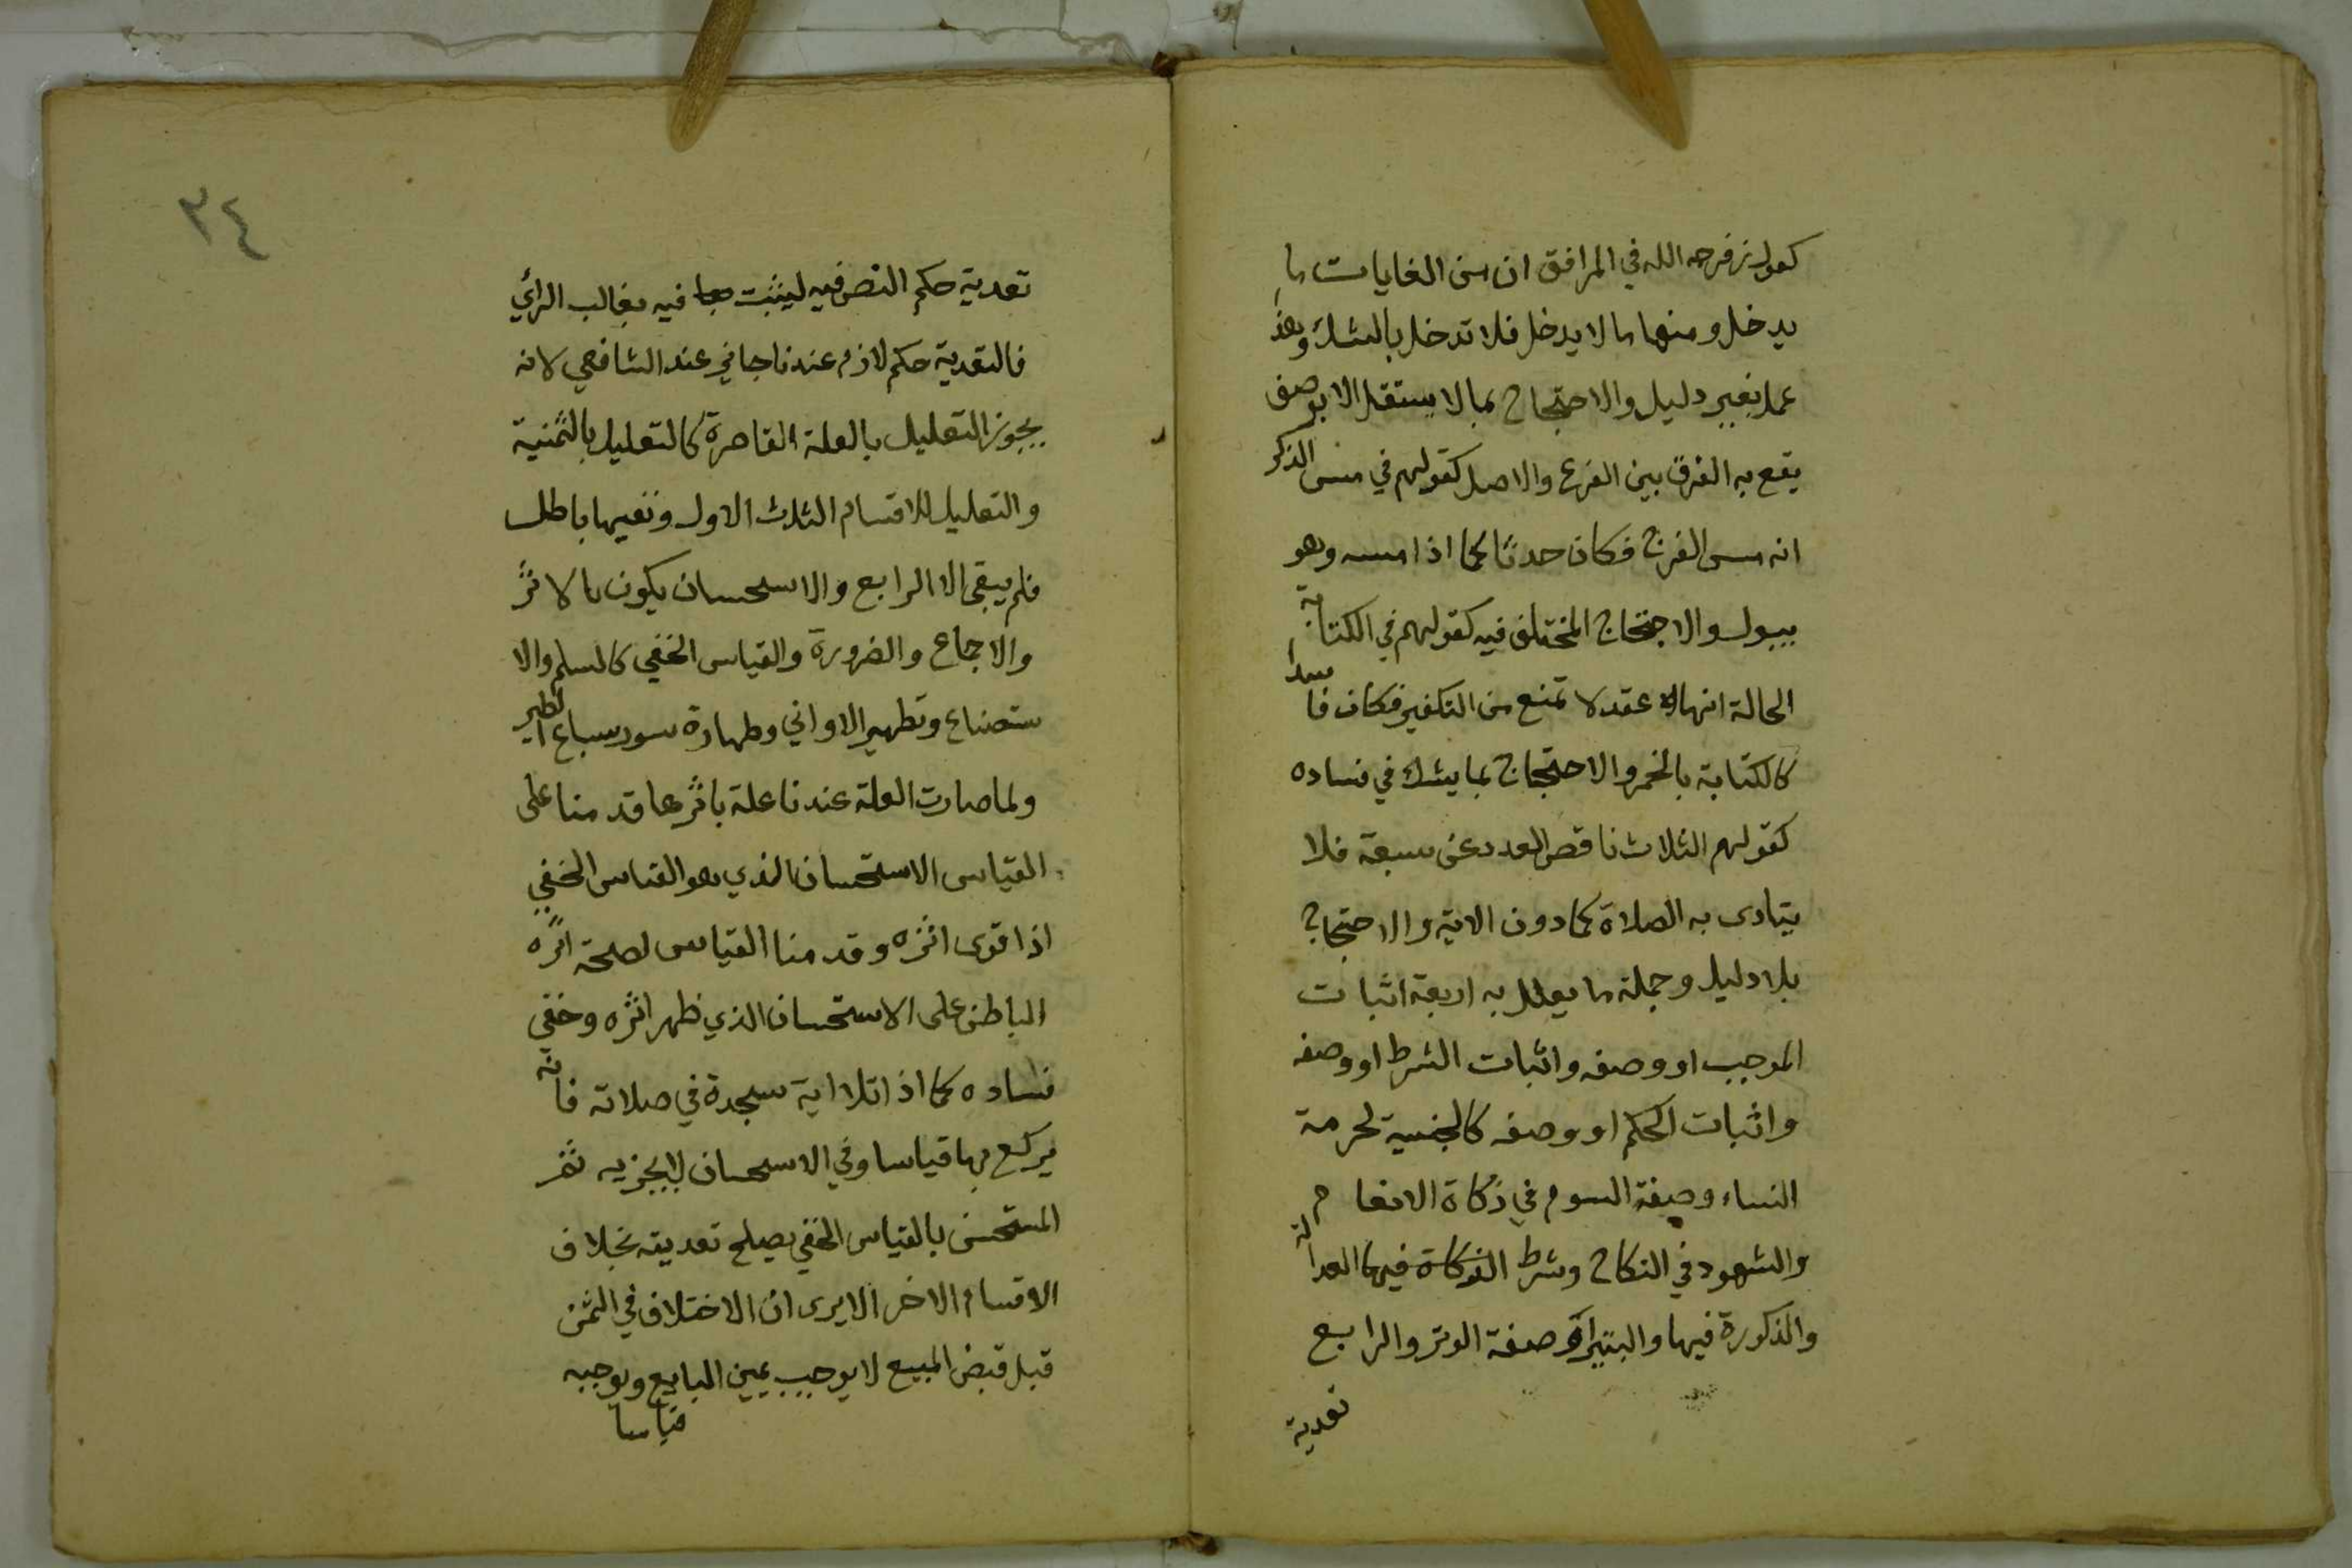 كقول زفر رحمه الله في المرافق ان من الغايات ما
يدخل ومنها ما لا يدخل فلا تدخل بالشك وهذا
عمل بغير دليل والاحتجاج بما لا يستقل الا بوصف
يقع به الفرق بين الفرع والاصل كقولهم في مس الذكر
انه مس الفرج فكان حدثا كما اذا مسه وهو
يبول والاحتجاج المختلف فيه كقولهم في الكتابة
الحالة انها عقد لا تمنع من التكفير فكان فاسدا
كالكتابة بالخمر والاحتجاج بما يشك في فساده
كقولهم الثلاث ناقص العدد عن سبعة فلا
يتادى به الصلاة كما دون الاية والاحتجاج
بلا دليل وجملة ما يعلل به اربعة اثبات
الموجب او وصفه واثبات الشرط او وصفه
واثبات الحكم او وصفه كالجنسية لحرمة
النساء وصفة السوم في زكاة الانعام
والشهود في النكاح وشرط فيها العدالة
والذكورة فيها والبتيراء وصفة الوتر والرابع
تعدية
٣٤
تعدية حكم النص فيه ليثبت فيه بغالب الرأي
فالتعدية حكم لازم عندنا جائز عند الشافعي لانه
يجوز التعليل بالعلة القاصرة كالتعليل بالثمنية
والتعليل للاقسام الثلاث الاول ونفيها باطل
فلم يبقى الا الرابع والاستحسان يكون بالاثر
والاجماع والضرورة والقياس الخفي كالسلم والا
ستصناع وتطهير الاواني وطهارة سور سباع الطير
ولما صارت العلة عندنا علة باثرها قدمنا على
القياس الاستحسان الذي هو القياس الخفي
اذا قوى اثره وقدمنا القياس لصحة اثره
الباطن على الاستحسان الذي ظهر اثره وخفي
فساده كما اذا تلا اية سجدة في صلاته فانه
يركع بها قياسا وفي الاستحسان لا يجزيه ثم
المستحسن بالقياس الخفي يصلح تعديته بخلاف
الاقسام الاخر الا يرى ان الاختلاف في الثمن
قبل قبض المبيع لا يوجب يمين البايع ويوجبه
قياسا